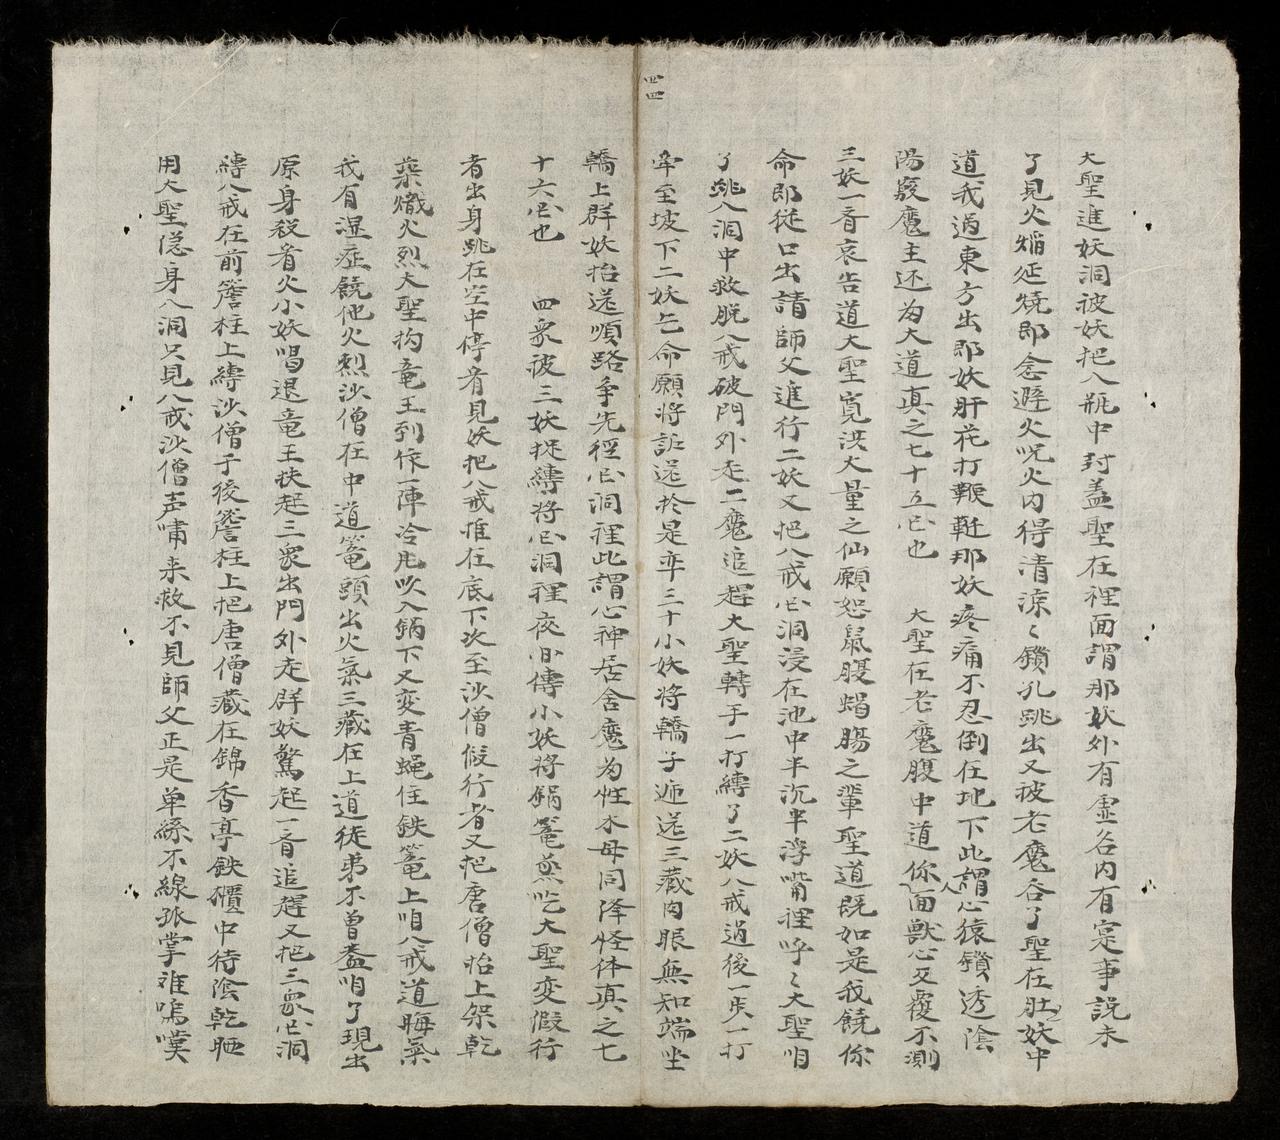 大聖進妖洞被妖把入瓶中封蓋聖在裡面謂那妖外有虛名内有寔事説未
了見火焔延燒即念避火呪火内得清涼〻鎖孔跳出又被老魔吞了聖在肚妖中
道我過東方出那妖肝花打鞦韆那妖疼痛不忍倒在地下此謂心猿鑚透陰
陽竅魔主还为大道真之七十五回也 大聖在老魔腹中道你人面獸心又覆不測
三妖一音哀告道大聖寬洪大量之仙願恕鼠腹蝎腸之輩聖道既如是我饒你
命即從口出請師父進行二妖又把八戒回洞浸在池中半沉半浮嘴裡呼〻大聖咱
了跳入洞中救脱八戒破門外走二魔追趕大聖轉手一打縛了二妖八戒過後一步一打
牽至坡下二妖乞命願将訨送於是率三十小妖将轎子迎送三藏肉眼無知端坐
四四
轎上群妖抬送順路争先徑回洞裡此謂心神居舍魔为性木母同降怪体真之七
十六回也 四衆被三妖捉縛将回洞裡夜间傳小妖将鍋篭蒸吃大聖変假行
者出身跳在空中停音見妖把八戒推在底下次至沙僧假行者又把唐僧抬上架乾
柴熾火烈大聖拘竜王到作一陣冷凨吹入鍋下又変青蝇住鉄篭上咱八戒道晦氣
我有濕症饒他火烈沙僧在中道篭頭出火氣三藏在上道徒弟不曽蓋咱了現出
原身殺着火小妖喝退竜王扶起三衆出門外走群妖驚起一音追趕又把三衆回洞
縛八戒在前簷柱上縛沙僧于後簷柱上把唐僧藏在錦香亭鉄櫃中待陰乾晒
用大聖隐身入洞只見八戒沙僧声嘯来救不見師父正是单絲不線孤掌难鳴嘆